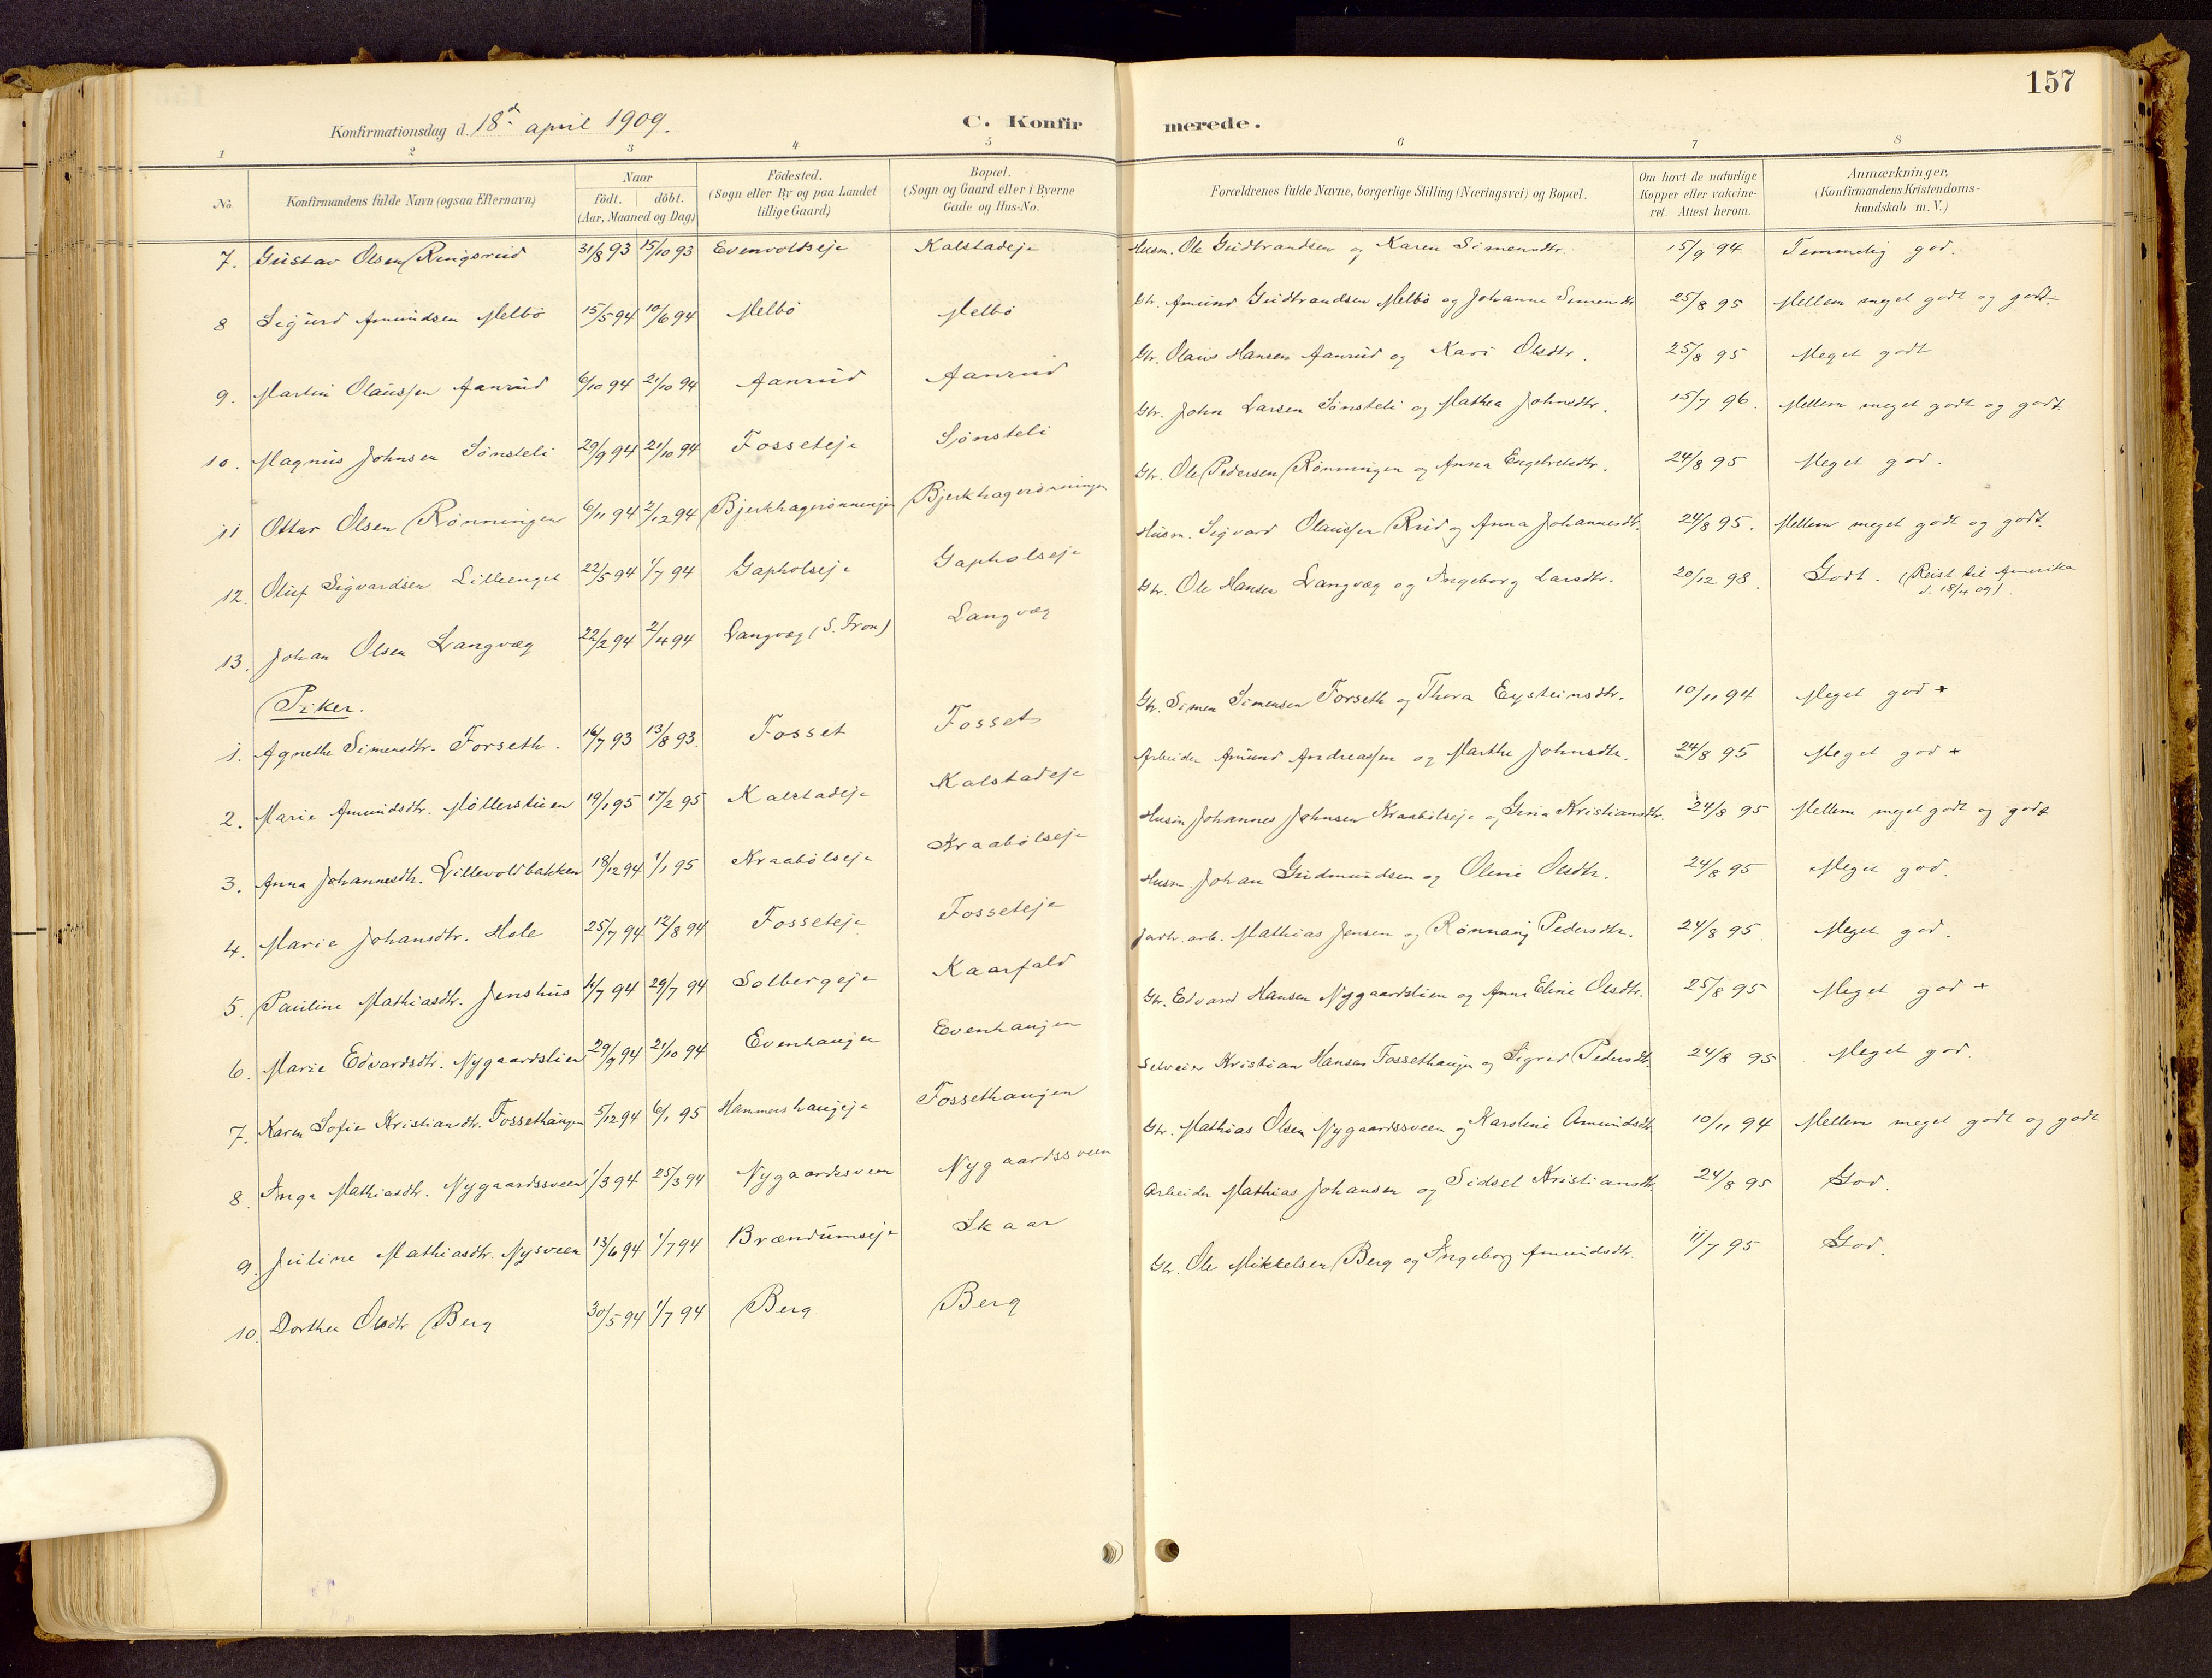 157
Konfirmationsdag d. 18d april 1909.
C. Konfirmerede.
1 2 3 4 5 6 7 8
No.
Konfirmandens fulde Navn (ogsaa Efternavn)
Naar
födt. döbt.
(Aar, Maaned og Dag)
Födested.
(Sogn eller By og paa Landet
tillige Gaard)
Bopæl.
(Sogn og Gaard eller i Byerne
Gade og Hus-No.
Forældrenes fulde Navne, borgerlige Stilling (Næringsvei) og Bopæl.
Om havt de naturlige
Kopper eller vakcine-
ret. Attest herom.
Anmærkninger,
(Konfirmandens Kristendoms-
kundskab m. V.)
7. Gustav Olsen Ringsrud 31/8 93 15/10 93 Evenvoldseje Kalstadeje Husm. Ole Gudbrandsen og Karen Simensdtr. 15/9 94 Temmelig god.
8 Sigurd Amundsen Melbö 15/5 94 10/6 94 Melbö Melbö Gbr. Amund Gudbrandsen Melbö og Johanne Simensdtr 25/8 95 Mellem meget godt og godt.
9. Martin Olaussen Aanrud 6/10 94 21/10 94 Aanrud Aanrud Gbr. Olaus Hansen Aanrud og Kari Olsdtr. 25/8 95 Meget godt
10. Magnus Johnsen Sönsteli 29/9 94 21/10 94 Fosseteje Sönsteli Gbr. John Larsen Sönsteli og Mathea Johnsdtr. 15/7 96. Mellem meget godt og godt
11 Ottar Olsen Rönningen 6/11 94 2/12 94 Bjerkhagerönningen Bjerkhagerönningen Gbr. Ole Pedersen Rönningen og Anna Engebretsdtr. 24/8 95 Meget god.
12. Oluf Sigvardsen Lilleenget 22/5 94 1/7 94 Gapholseje Gapholseje Husm. Sigvard Olaussen Rud og Anna Johannesdtr. 24/8 95. Mellem meget godt og godt.
13. Johan Olsen Langvæg 22/2 94 2/4 94 Langvæg (S. Fron) Langvæg Gbr. Ole Hansen Langvæg og Ingeborg Larsdtr. 20/12 98. Godt. (Reist til Amerika
d. 18/4 09).
Piker.
1. Agnethe Simensdtr. Forseth. 16/7 93 13/8 93. Fosset Fosset Gbr. Simen Simensen Forseth og Thora Eysteinsdtr. 10/11 94 Meget god +
2. Marie Amundsdtr. Möllerstuen 19/1 95 17/2 95 Kalstadeje Kalstadeje Arbeider Amund Andreassen og Marthe Johnsdtr. 24/8 95 Meget god +
3. Anna Johannesdtr. Lillevoldbakken 18/12 94 1/1 95 Kraabölseje Kraabölseje Husm Johannes Johnsen Kraabölseje og Gina Kristiansdtr. 24/8 95 Mellem meget godt og godt
4. Marie Johansdtr. Hole 25/7 94 12/8 94 Fosseteje Fosseteje Husm. Johan Gudmundsen og Oline Olsdtr. 24/8 95 Meget god.
5. Pauline Mathiasdtr. Jenshus 4/7 94 29/7 94 Solbergeje Kaarfald Jordbr. arb. Mathias Jensen og Rönnaug Pedersdtr. 24/8 95. Meget god.
6. Marie Edvardsdtr. Nygaardslien 29/9 94 21/10 94 Evenhaugen Evenhaugen Gbr. Edvard Hansen Nygaardslien og Anna Eline Olsdtr. 25/8 95 Meget god +
7. Karen Sofie Kristiansdtr. Fossethaugen 5/12 94 6/1 95 Hammershaugeje Fossethaugen Selveier Kristian Hansen Fossethaugen og Sigrid Pedersdtr. 24/8 95 Meget god.
8. Inga Mathiasdtr. Nygaardssveen 1/3 94 25/3 94 Nygaardssveen Nygaardssveen Gbr. Mathias Olsen Nygaardssveen og Karoline Amundsdtr 10/11 94 Mellem meget godt og godt
9. Juline Mathiasdtr. Nysveen 13/6 94 1/7 94 Brændumseje Skaar Arbeider Mathias Johansen og Sidsel Kristiansdtr. 24/8 95 God.
10. Dorthea Olsdtr Berg 30/5 94 1/7 94 Berg Berg Gbr. Ole Mikkelsen Berg og Ingeborg Amundsdtr. 11/7 95 God.